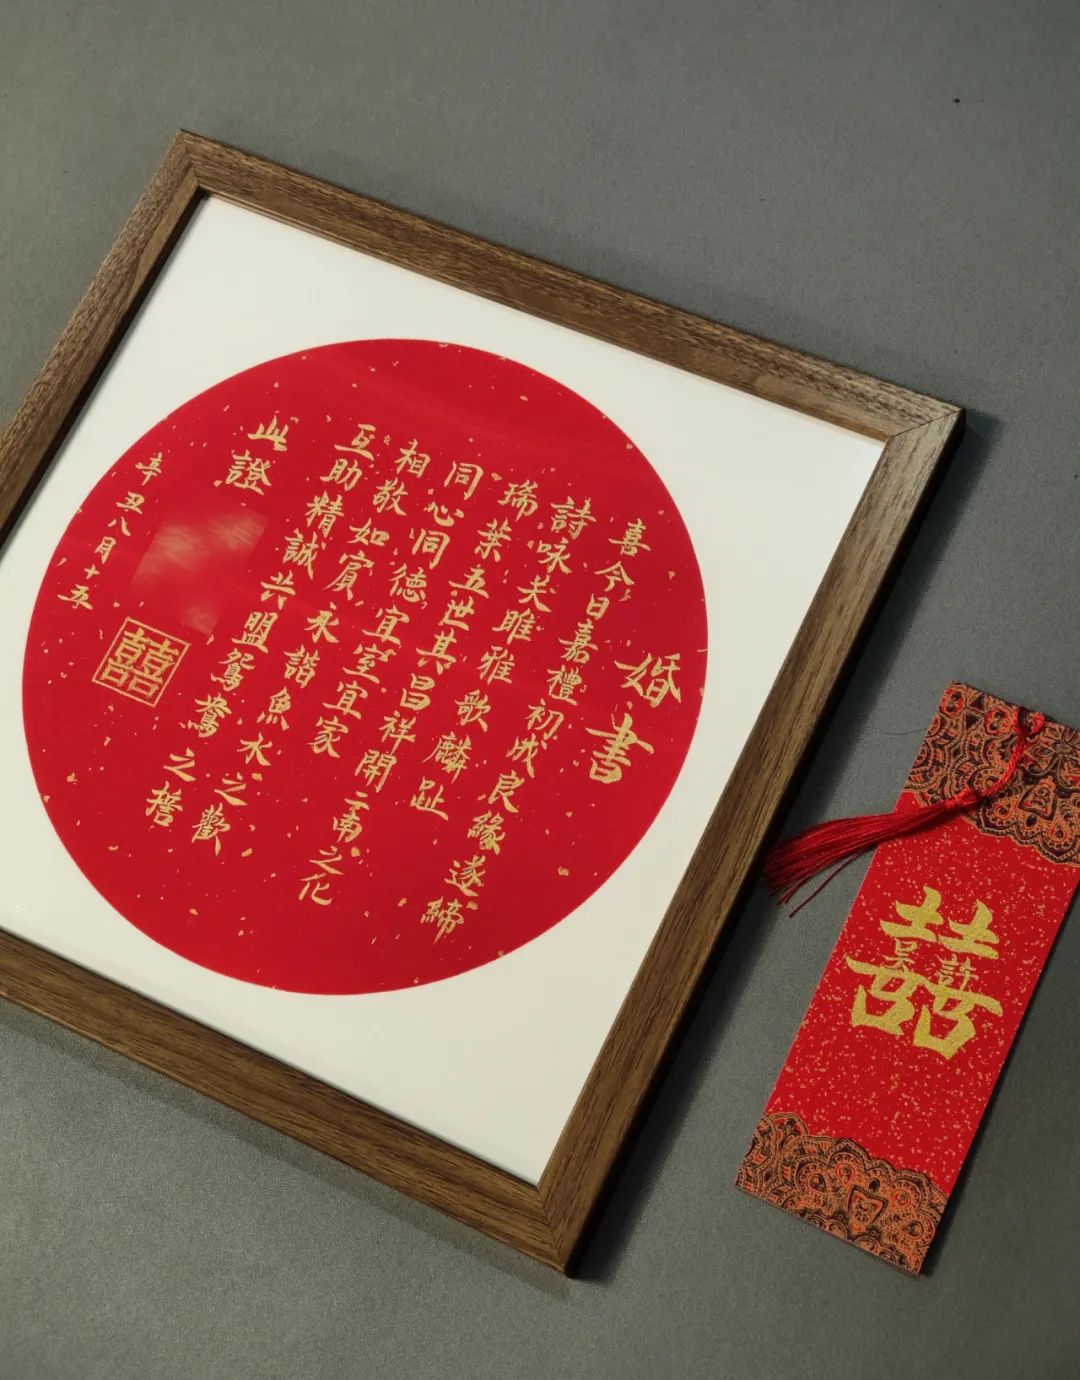 婚書
喜今日嘉禮初成良緣遂締
詩咏关雎雅歌麟趾
瑞葉五世其昌祥開二南之化
同心同德宜室宜家
相敬如賓永諧魚水之歡
互助精誠共盟鴛鴦之
此證
辛丑八月十五
囍
囍
吴許